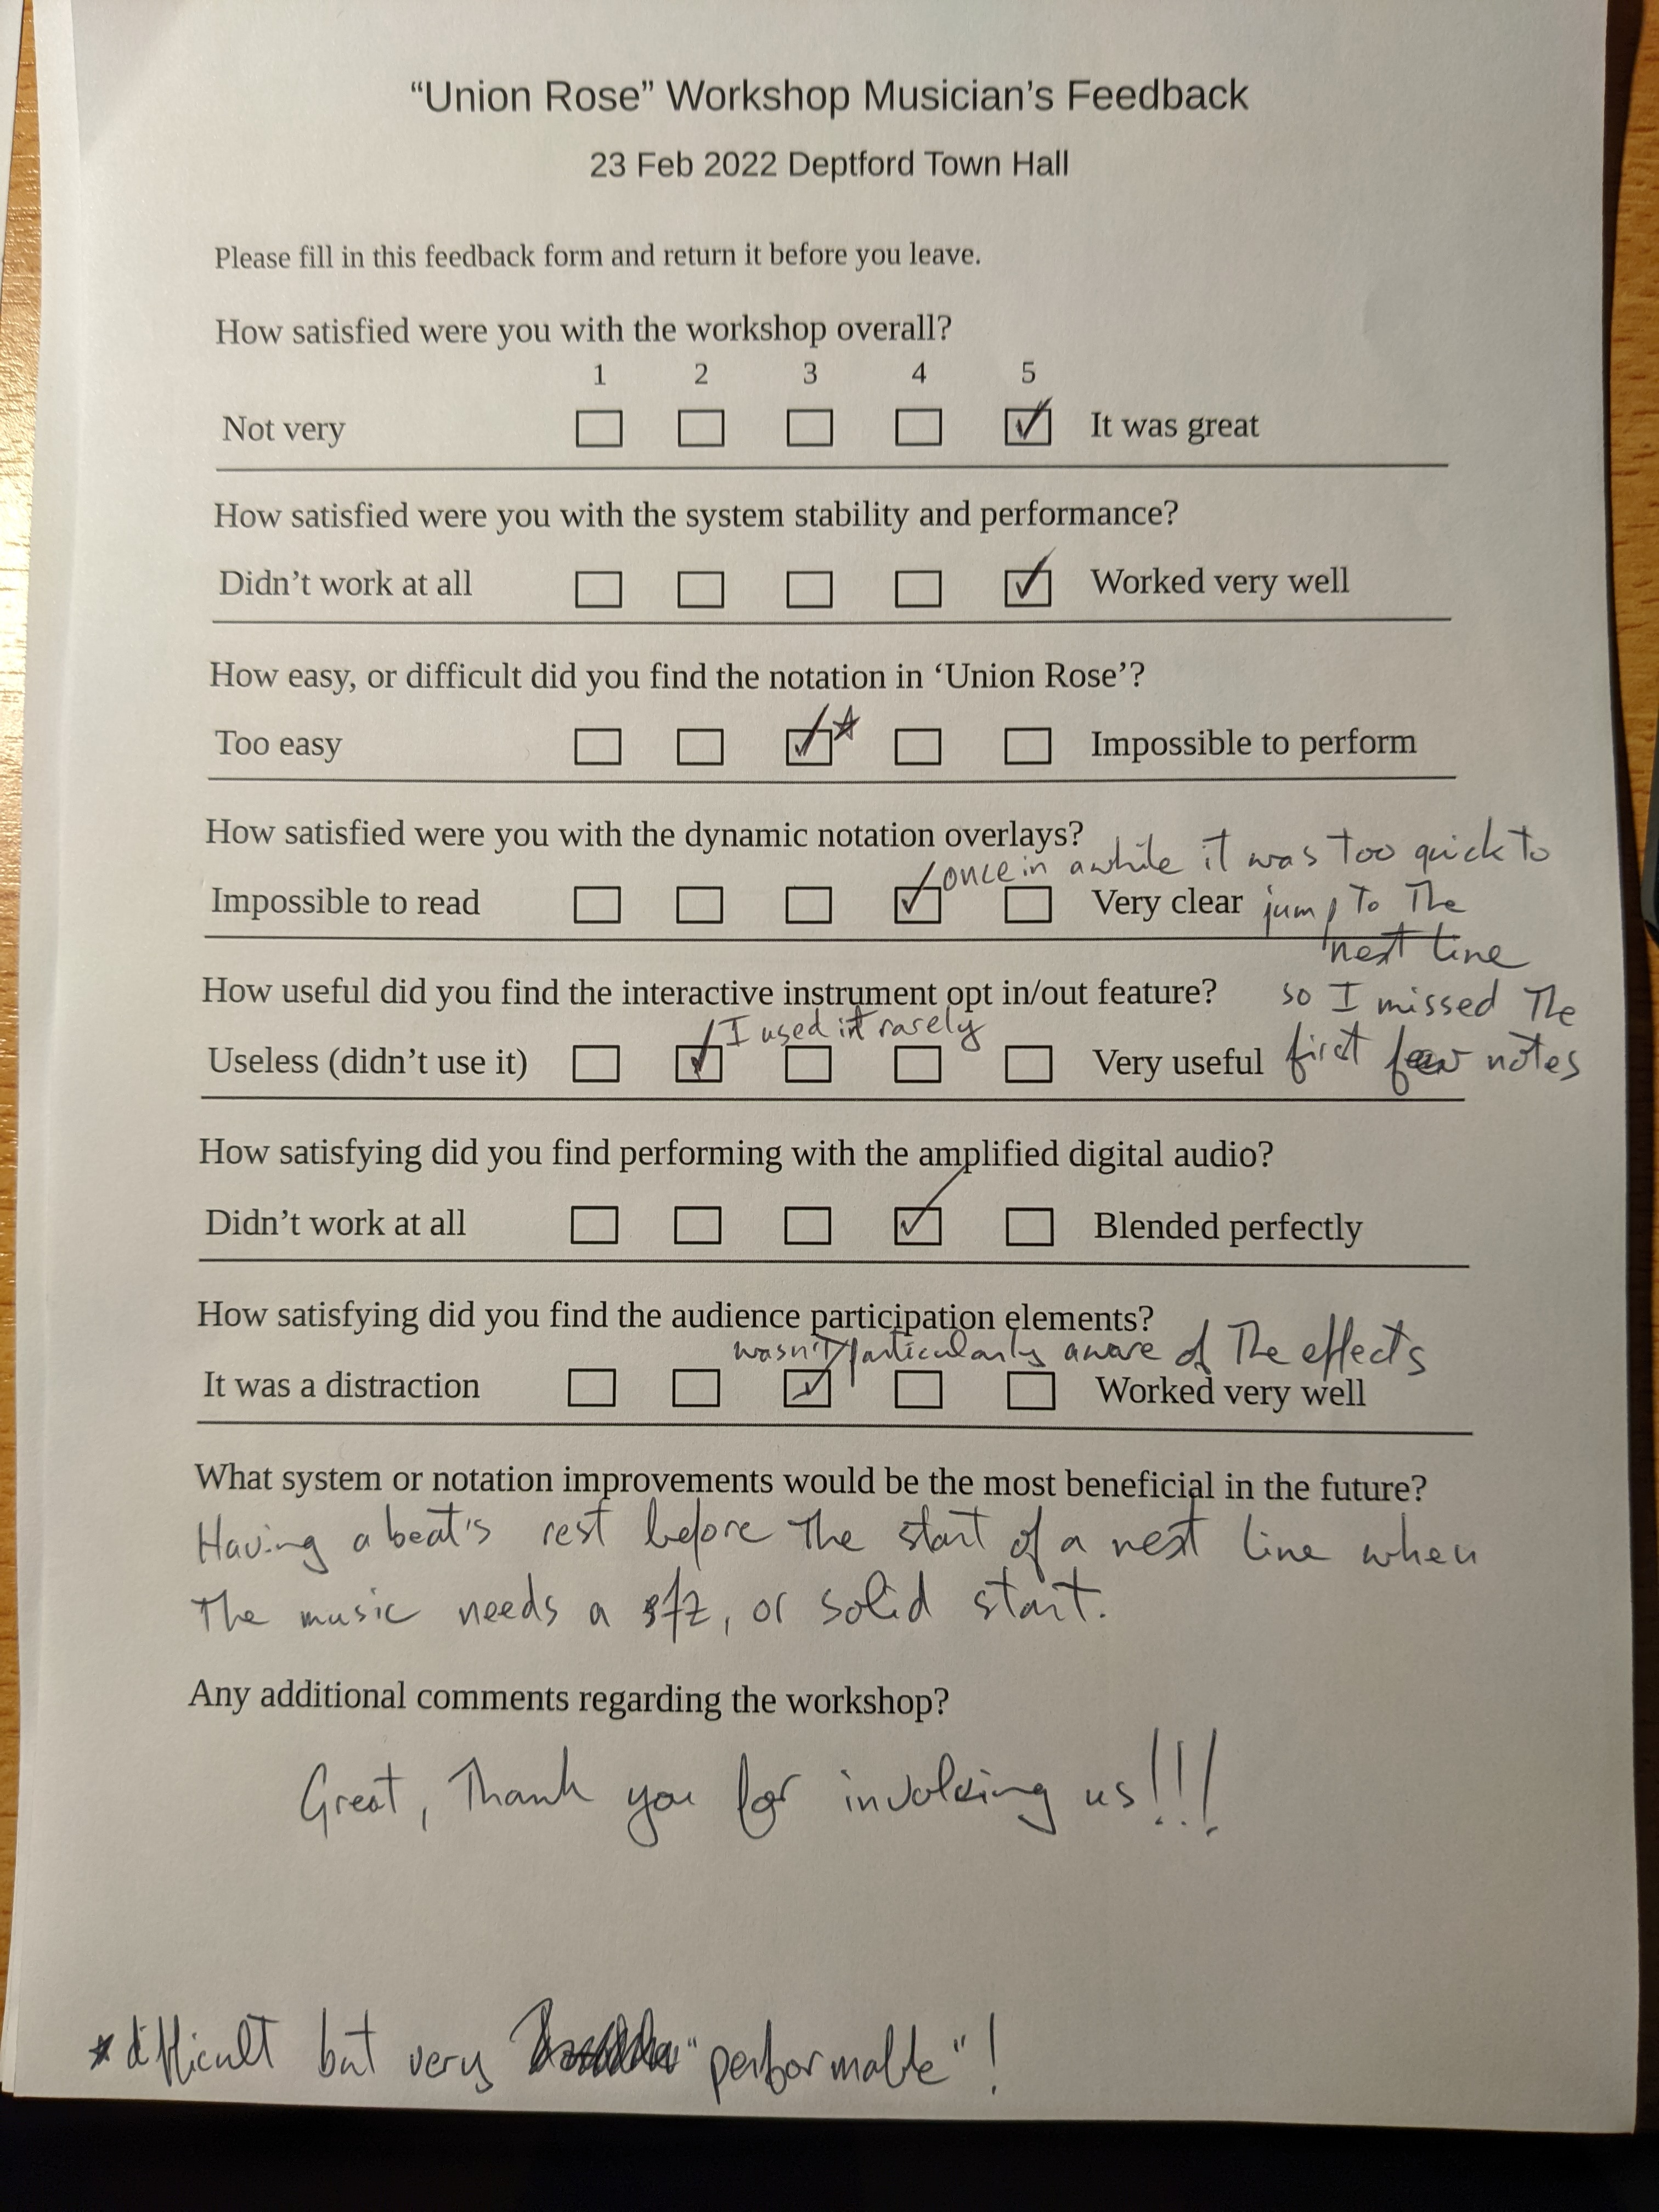 “Union Rose” Workshop Musician’s Feedback
23 Feb 2022 Deptford Town Hall
Please fill in this feedback form and return it before you leave.
How satisfied were you with the workshop overall?
1 2 3 4 5
Not very It was great
How satisfied were you with the system stability and performance?
Didn’t work at all Worked very well
How easy, or difficult did you find the notation in ‘Union Rose’?
Too easy * Impossible to perform
How satisfied were you with the dynamic notation overlays?
once in a while it was too quick to
Impossible to read Very clear jump to the
next line
How useful did you find the interactive instrument opt in/out feature? so I missed the
I used it rarely
Useless (didn’t use it) Very useful first few notes
How satisfying did you find performing with the amplified digital audio?
Didn’t work at all Blended perfectly
How satisfying did you find the audience participation elements?
wasn't particularly aware of the effects
It was a distraction Worked very well
What system or notation improvements would be the most beneficial in the future?
Having a beat's rest before the start of a next line when
the music needs a sfz, or solid start.
Any additional comments regarding the workshop?
Great, Thank you for involving us!!!
* difficult but very "performable"!